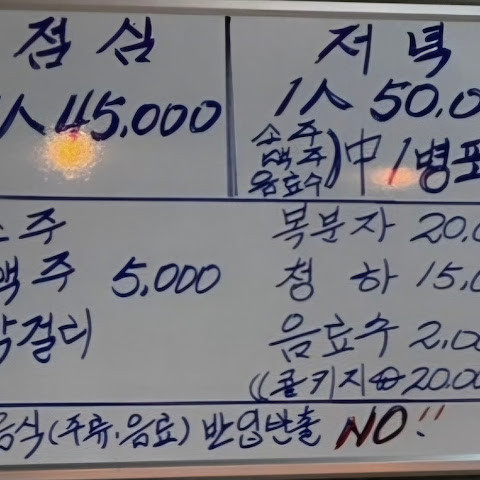 점심
人 45,000
저녁
1人 50,0
소주
맥주
음료수) 中 1병포
소주
맥주 5,000
막걸리
복분자 20,0
청하 15,0
음료수 2,00
((콜키지 20,00
음식(주류.음료) 반입반출 NO!!